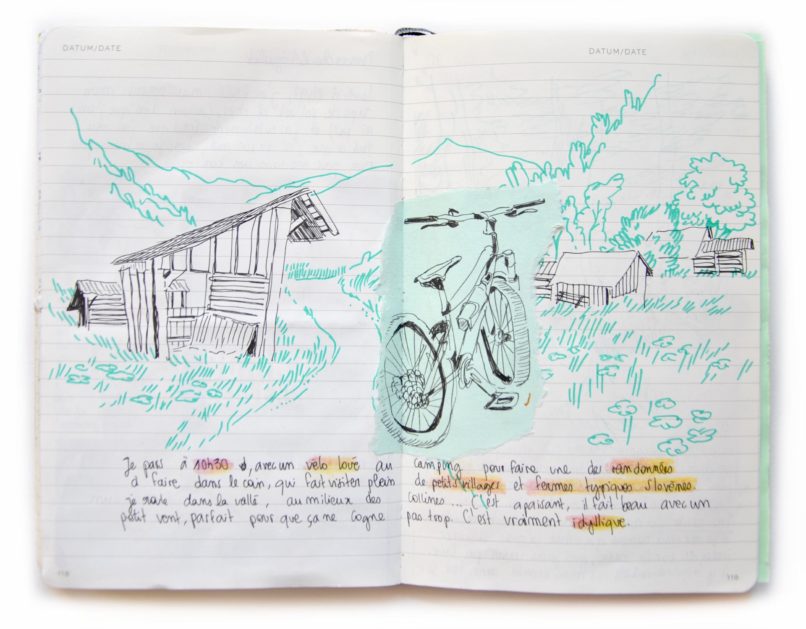 DATUM/DATE
DATUM/DATE
Je pars à 10h30, avec un vélo loué au camping pour faire une des randonnées
à faire dans le coin, qui fait visiter plein de petits villages et fermes typiques Slovènes.
je dans la vallé, au milieux des collines... C'est apaisant, il fait beau avec un
petit vent, parfait pour que ça ne cogne pas trop. C'est vraiment idyllique.
118